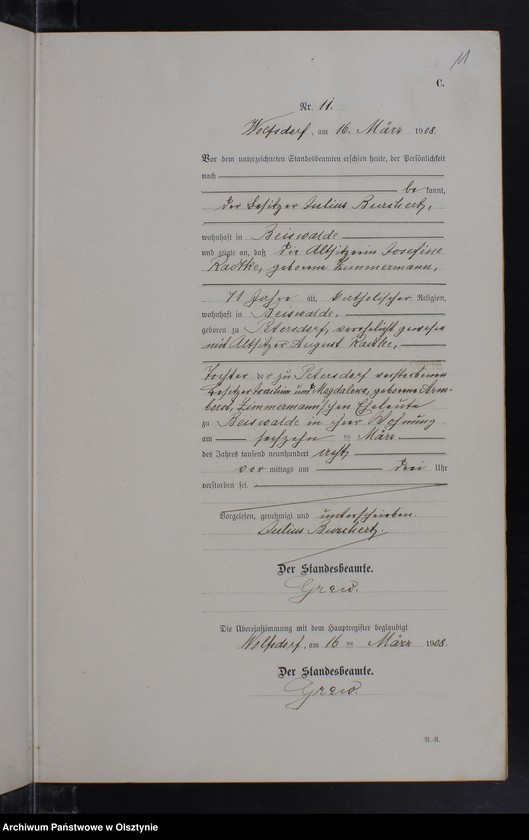 11
C.
Nr. 11.
Wolfsdorf, am 16. März 1908.
Vor dem unterzeichneten Standesbeamten erschien heute, der Persönlichkeit
nach
be kannt,
der Besitzer Julius Burchert,
wohnhaft in Beiswalde
und zeigte an, daß die Altsitzerin Josefine
Radtke, geborene Zimmermann,
71 Jahre alt, katholischer Religion,
wohnhaft in Beiswalde,
geboren zu Petersdorf, verehelicht gewesen
mit Altsitzer August Radtke,
Tochter der zu Petersdorf verstorbenen
Besitzer Joachim und Magdalena, geborene
Zimmermann'schen Eheleute
zu Beiswalde in ihrer Wohnung
am sechzehn ten März
des Jahres tausend neunhundert acht
vor mittags um drei Uhr
verstorben sei.
Vorgelesen, genehmigt und unterschrieben
Julius Burchert.
Der Standesbeamte.
Grew.
Die Übereinstimmung mit dem Hauptregister beglaubigt
Wolfsdorf, am 16 ten März 1908.
Der Standesbeamte.
Grew.
Archiwum Państwowe w Olsztynie